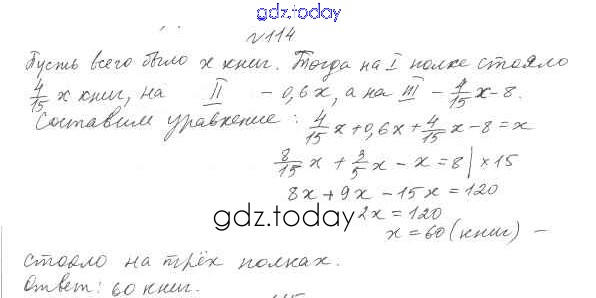 gdz.today
№114
Пусть всего было x книг. Тогда на I полке стояло
4/15 x книг, на II - 0,6x, а на III - 4/15 x - 8.
Составим уравнение: 4/15 x + 0,6x + 4/15 x - 8 = x
8/15 x + 3/5 x - x = 8 | × 15
8x + 9x - 15x = 120
gdz.today
2x = 120
x = 60 (книг) -
стояло на трёх полках.
Ответ: 60 книг.